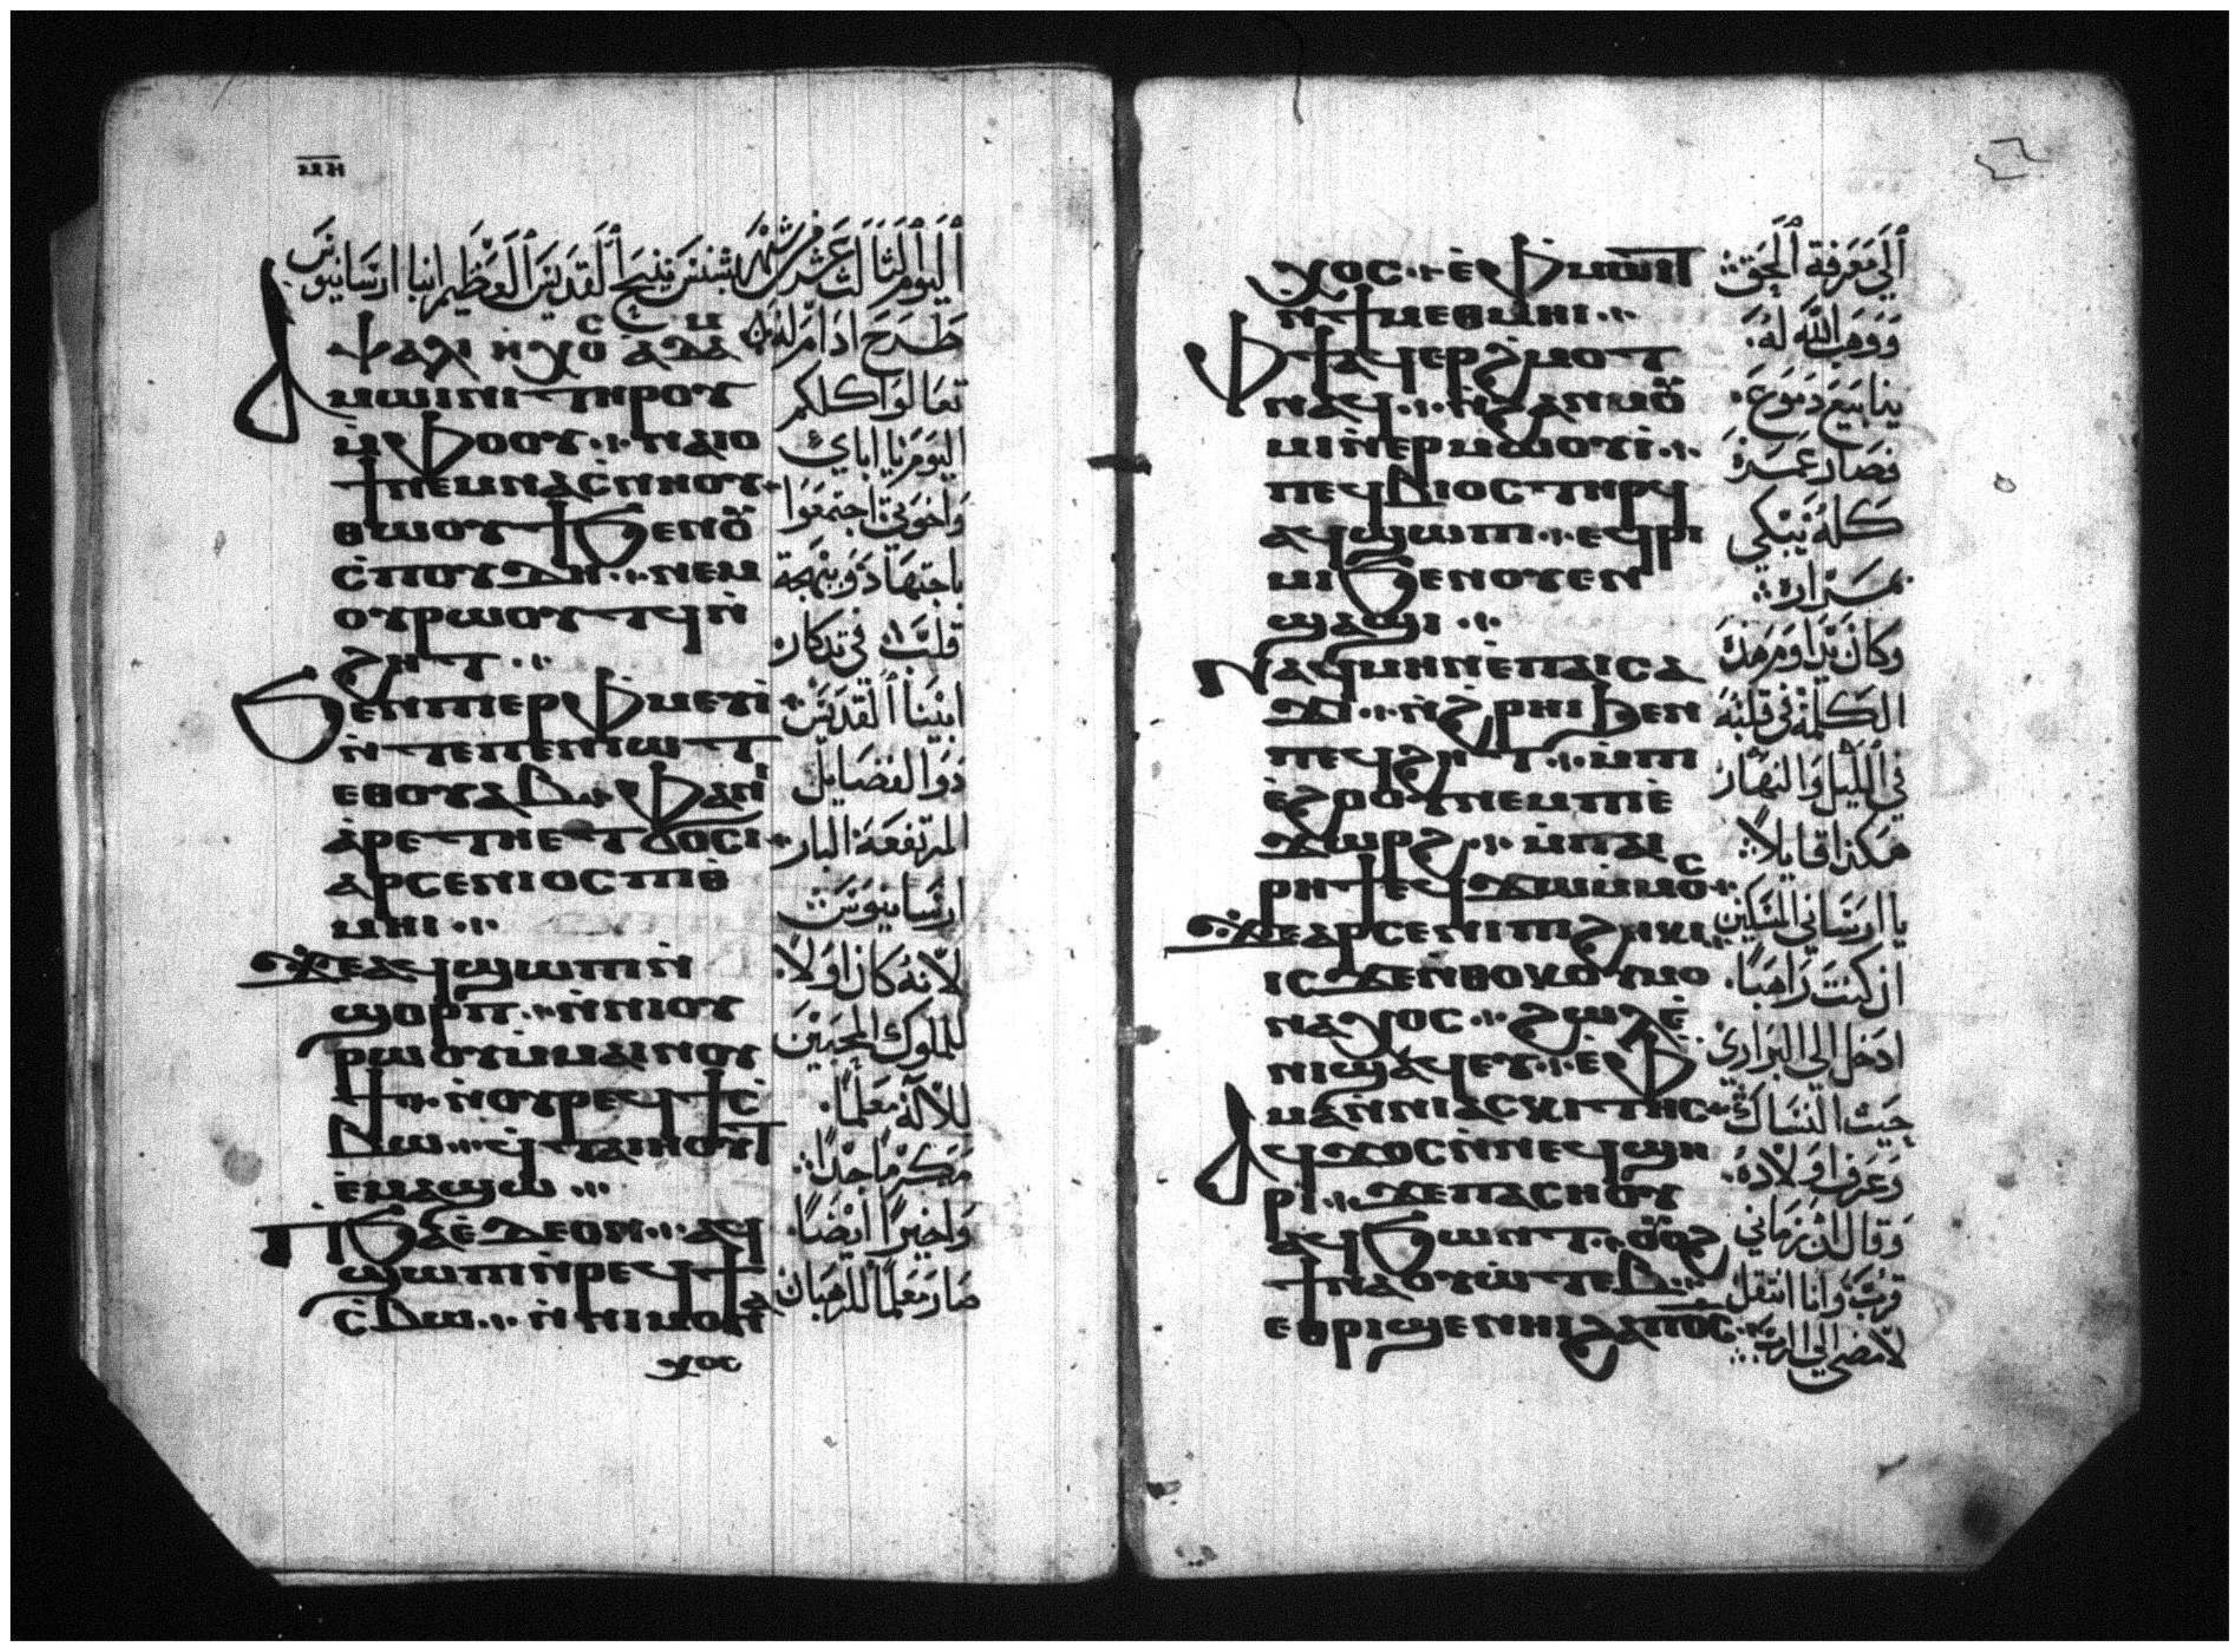 ⲙⲏ
اَليَوم اَلثَالث عَشَر مِن شَهر بشنس نيح اَلقديس اَلعَظيم انبا ارسانيوس
طَرح ادَام
Ⲁⲙⲱⲓⲛⲓ ⲧⲏⲣⲟⲩ
ⲙ̀ⲫⲟⲟⲩ · ⲛⲁⲓⲟ
ϯ ⲛⲉⲙ ⲛⲁⲥⲛⲏⲟⲩ
ⲑⲱⲟⲩϯ ϧⲉⲛ ⲟⲩ
ⲥⲡⲟⲩⲇⲏ · ⲛⲉⲙ
ⲟⲩⲣⲱⲟⲩⲧϥ ⲛ̀
ϩⲏⲧ
Ϧⲉⲛ ⲡⲓⲉⲣⲫⲙⲉⲩⲓ̀
ⲛ̀ⲧⲉ ⲡⲉⲛⲓⲱⲧ
ⲉⲑⲟⲩⲁⲃ · ⲫⲁ ⲛⲓ
ⲁⲣⲉⲧⲏ ⲉⲧϭⲟⲥⲓ
ⲁⲣⲥⲉⲛⲓⲟⲥ ⲡⲓⲑ
ⲙⲏⲓ
Ϫⲉ ⲁϥϣⲱⲡⲓ ⲛ̀
ϣⲟⲣⲡ · ⲛ̀ⲛⲓⲟⲩ
ⲣⲱⲟⲩ ⲙ̀ⲙⲁⲓⲛⲟⲩ
ϯ · ⲛ̀ⲟⲩⲣⲉϥϯⲥ̀
ⲃⲱ · ϥ̀ⲧⲁⲓⲏⲟⲩⲧ
ⲉⲙⲁϣⲱ
Ⲡϧⲁⲉ̀ ⲇⲉ ⲟⲛ · ⲁϥ
ϣⲱⲡⲓ ⲛ̀ⲣⲉϥϯ
ⲥ̀ⲃⲱ · ⲛ̀ⲛⲓⲙⲟⲛⲁ
ⲭⲟⲥ
تعَالوا كلكم
اليَوم يَا اباي
واخوتي اجتمعَوا
باجتهَاد وَبَهجَة
قلبٌ في تدكار
ابينَا اَلقديسَ
ذوَا لفضَايل
المرتفعَة البار
ارسَانيوسَ
لاَنهُ كان اوَلاً
للملوك المحبَيْن
للاَله مَعَلمًا
مَكَرَمًا جدًا
وَاخيرًا ايْضًا
صَار مَعَلمًا للرهبَان
ⲭⲟⲥ · ⲉ̀ⲫⲙⲱⲓⲧ
ⲛ̀ϯⲙⲉⲑⲙⲏⲓ
Ⲫϯ ⲁϥⲉⲣϩ̀ⲙⲟⲧ
ⲛⲁϥ · ⲛ̀ϩⲁⲛⲙⲟⲩ
ⲙⲓ ⲛ̀ⲉⲣⲙⲱⲟⲩⲓ̀
ⲡⲉϥⲃⲓⲟⲥ ⲧⲏⲣϥ
ⲁϥϣⲱⲡⲓ · ⲉϥⲣⲓ
ⲙⲓ ϧⲉⲛ ⲟⲩⲉⲛ
ϣⲁϣⲓ
Ⲛⲁϥⲙⲏⲛ ⲉ̀ⲡⲁⲓⲥⲁ
ϫⲓ · ⲛ̀ϩⲣⲏⲓ ϧⲉⲛ
ⲡⲉϥϩⲏⲧ · ⲙ̀ⲡⲓ
ⲉ̀ϩⲟⲟⲩ ⲛⲉⲙ ⲡⲓⲉ̀
ϫⲱⲣϩ · ⲙ̀ⲡⲁⲓ
ⲣⲏϯ ⲉϥϫⲱ ⲙ̀ⲙⲟⲥ
Ϫⲉ ⲁⲣⲥⲉⲛⲓ ⲡⲓϩⲏⲕⲓ
ⲓⲥϫⲉ ⲛⲑⲟⲕ ⲟⲩⲙⲟ
ⲛⲁⲭⲟⲥ · ϩⲱⲗ ⲉ̀
ⲛⲓϣⲁϥⲉⲩ · ⲉ̀ⲫ
ⲙⲁ ⲛ̀ⲛⲓⲁⲥⲕⲓⲧⲏⲥ
Ⲁϥϫⲟⲥ ⲛ̀ⲛⲉϥϣⲏ
ⲣⲓ · ϫⲉ ⲡⲁⲥⲏⲟⲩ
ⲁϥϧⲱⲛⲧ · ⲟⲩⲟϩ
ϯⲛⲁⲟⲩⲱⲧⲉⲃ
ⲉⲑⲣⲓϣⲉⲛⲏⲓ ϩⲁ ⲡⲟ̅ⲥ̅
اَلي مَعَرفة اَلحَق
وَوهَب اللّه لهُ
ينَابيَع دموَع
فصَار عَمَرهُ
كلهُ يَبكي
بمَرَارة
وكان يدَاوم هَذه
الكلمَة في قلبَهُ
في الليل وَالنهَار
هَكذا قايلاً
يا ارسَاني المسَكين
ان كنتَ رَاهبَا
ادخل الى البَرَاري
حَيث النسَاك
وَعَرف اوَلاَدهُ
وَقال ان زمَاني
قربَ وَانا انتقل
لاَمضي الى الرب